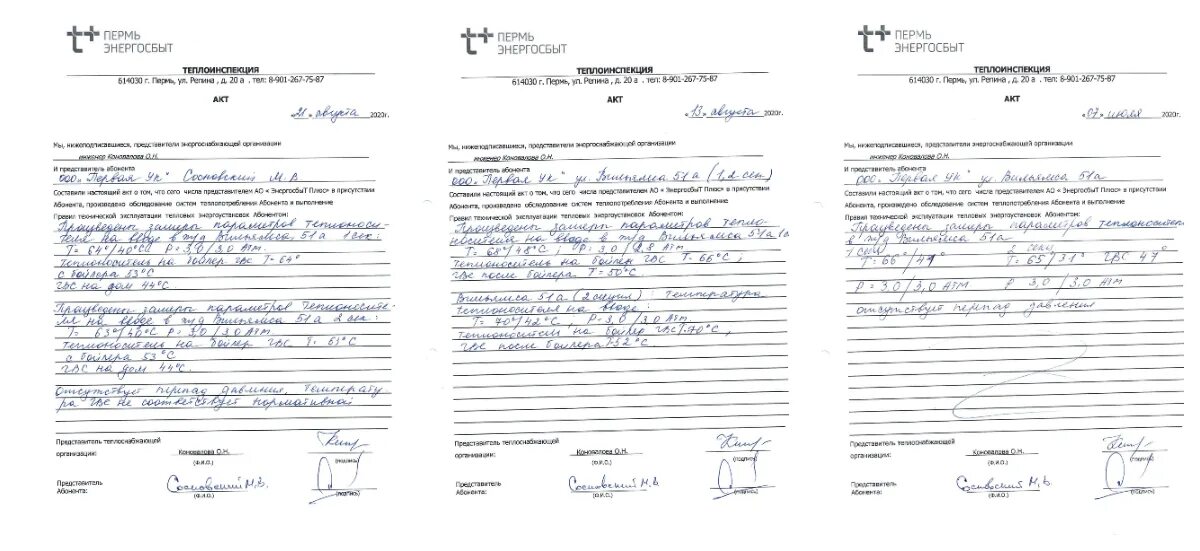 ПЕРМЬ
ЭНЕРГОСБЫТ
ТЕПЛОИНСПЕКЦИЯ
614030 г. Пермь, ул. Репина , д. 20 а . тел: 8-901-267-75-87
АКТ
«21» августа 2020г.
Мы, нижеподписавшиеся, представители энергоснабжающей организации
инженер Коновалова О.Н.
И представитель абонента
ООО "Первая УК" Сосновский М.В
Составили настоящий акт о том, что сего числа представителем АО « ЭнергосбыТ Плюс» в присутствии
Абонента, произведено обследование систем теплопотребления Абонента и выполнение
Правил технической эксплуатации тепловых энергоустановок Абонентом:
Произведены замеры параметров теплоноси-
теля на вводе в ж/д Вильямса 51а 1 сек:
T= 64°/40°C P= 3,0 /3,0 Атм.
теплоноситель на бойлер ГВС T= 64°
с бойлера 53°C
ГВС на дом 44°C.
Произведены замеры параметров теплоносите-
ля на вводе в ж/д Вильямса 51а 2 сек:
T= 63°/40°C P= 3,0 /3,0 Атм.
теплоноситель на бойлер ГВС T= 63°C
с бойлера 53°C
ГВС на дом 44°C.
Отсутствует перепад давления, температу-
ра ГВС не соответствует нормативной
Представитель теплоснабжающей
организации:
Коновалова О.Н.
(Ф.И.О.)
(подпись)
Представитель
Абонента:
Сосновский М.В.
(Ф.И.О.)
(подпись)
ПЕРМЬ
ЭНЕРГОСБЫТ
ТЕПЛОИНСПЕКЦИЯ
614030 г. Пермь, ул. Репина , д. 20 а . тел: 8-901-267-75-87
АКТ
«13» августа 2020г.
Мы, нижеподписавшиеся, представители энергоснабжающей организации
инженер Коновалова О.Н.
И представитель абонента
ООО "Первая УК" ул. Вильямса 51а (1,2 сек)
Составили настоящий акт о том, что сего числа представителем АО « ЭнергосбыТ Плюс» в присутствии
Абонента, произведено обследование систем теплопотребления Абонента и выполнение
Правил технической эксплуатации тепловых энергоустановок Абонентом:
Произведены замеры параметров тепло-
носителя на вводе в ж/д Вильямса 51а
T= 68°/48°C, P= 3,0 /2,8 Атм
теплоноситель на бойлер ГВС T= 66°C;
ГВС после бойлера T=50°C
Вильямса 51а (2 секция): температура
теплоносителя на вводе:
T= 70°/42°C, P=3,0 /3,0 Атм.
теплоноситель на бойлер ГВС T-70°C,
ГВС после бойлера T-52°C
Представитель теплоснабжающей
организации:
Коновалова О.Н.
(Ф.И.О.)
(подпись)
Представитель
Абонента:
Сосновский М.В.
(Ф.И.О.)
(подпись)
ПЕРМЬ
ЭНЕРГОСБЫТ
ТЕПЛОИНСПЕКЦИЯ
614030 г. Пермь, ул. Репина , д. 20 а . тел: 8-901-267-75-87
АКТ
«07» июля 2020г.
Мы, нижеподписавшиеся, представители энергоснабжающей организации
инженер Коновалова О.Н.
И представитель абонента
ООО "Первая УК" ул. Вильямса 51а
Составили настоящий акт о том, что сего числа представителем АО « ЭнергосбыТ Плюс» в присутствии
Абонента, произведено обследование систем теплопотребления Абонента и выполнение
Правил технической эксплуатации тепловых энергоустановок Абонентом:
Произведены замеры параметров теплоносителя
в ж/д Вильямса 51а.
1 секц. 2 секц
T= 66°/41° T= 65/31° ГВС 47°
P= 3,0 /3,0 Атм P 3,0 /3,0 Атм
отсутствует перепад давления
Представитель теплоснабжающей
организации:
Коновалова О.Н.
(Ф.И.О.)
(подпись)
Представитель
Абонента:
Сосновский М.В.
(Ф.И.О.)
(подпись)